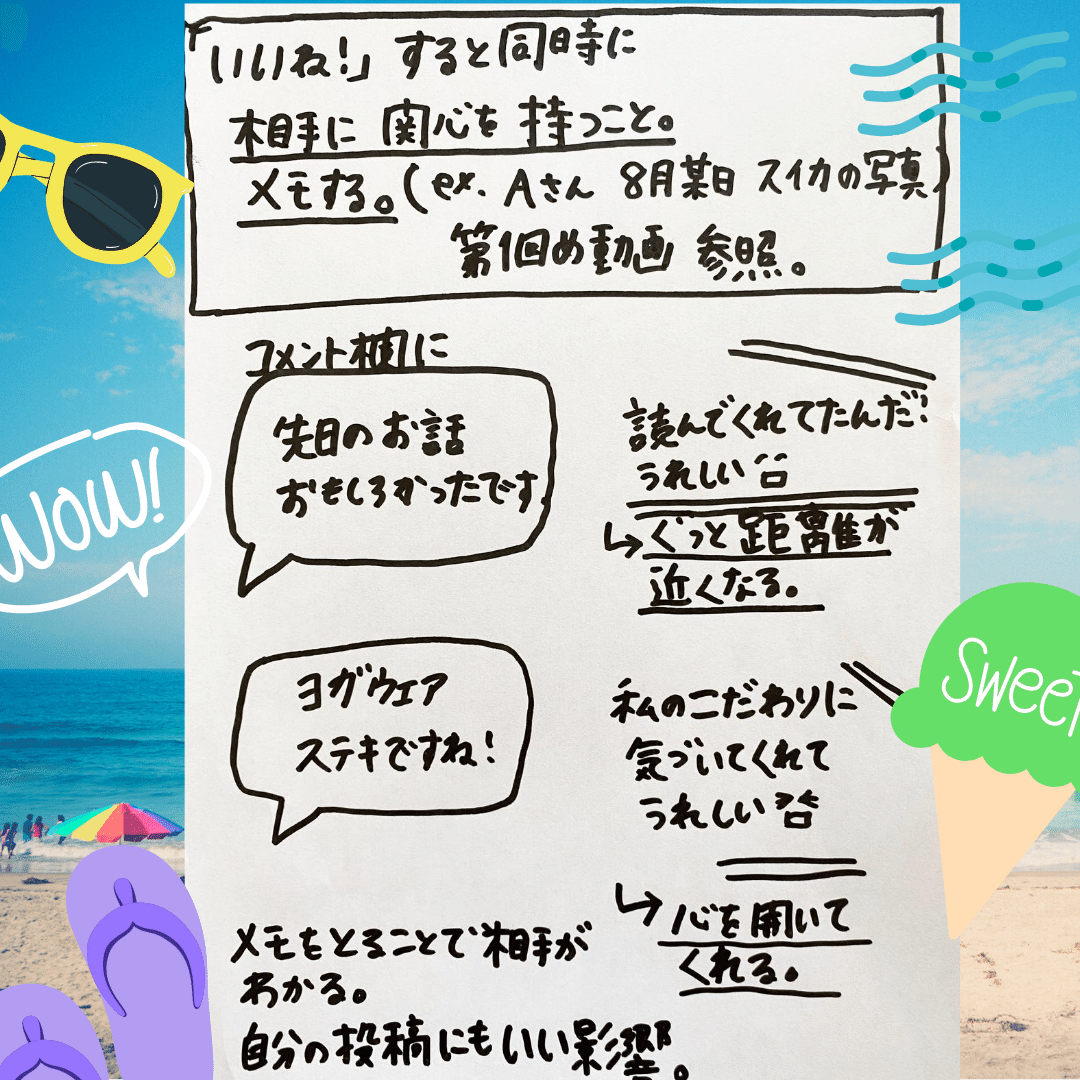 「いいね!」すると同時に
相手に関心を持つこと。
メモする。(ex. Aさん 8月某日 スイカの写真)
第1回め動画 参照。
コメント欄に
先日のお話
おもしろかったです
読んでくれてたんだ!
うれしい
↳ぐっと距離が
近くなる。
WOW!
ヨガウェア
ステキですね!
SWEET
私のこだわりに
気づいてくれて
うれしい
↳心を開いて
くれる。
メモをとることで相手が
わかる。
自分の投稿にもいい影響。